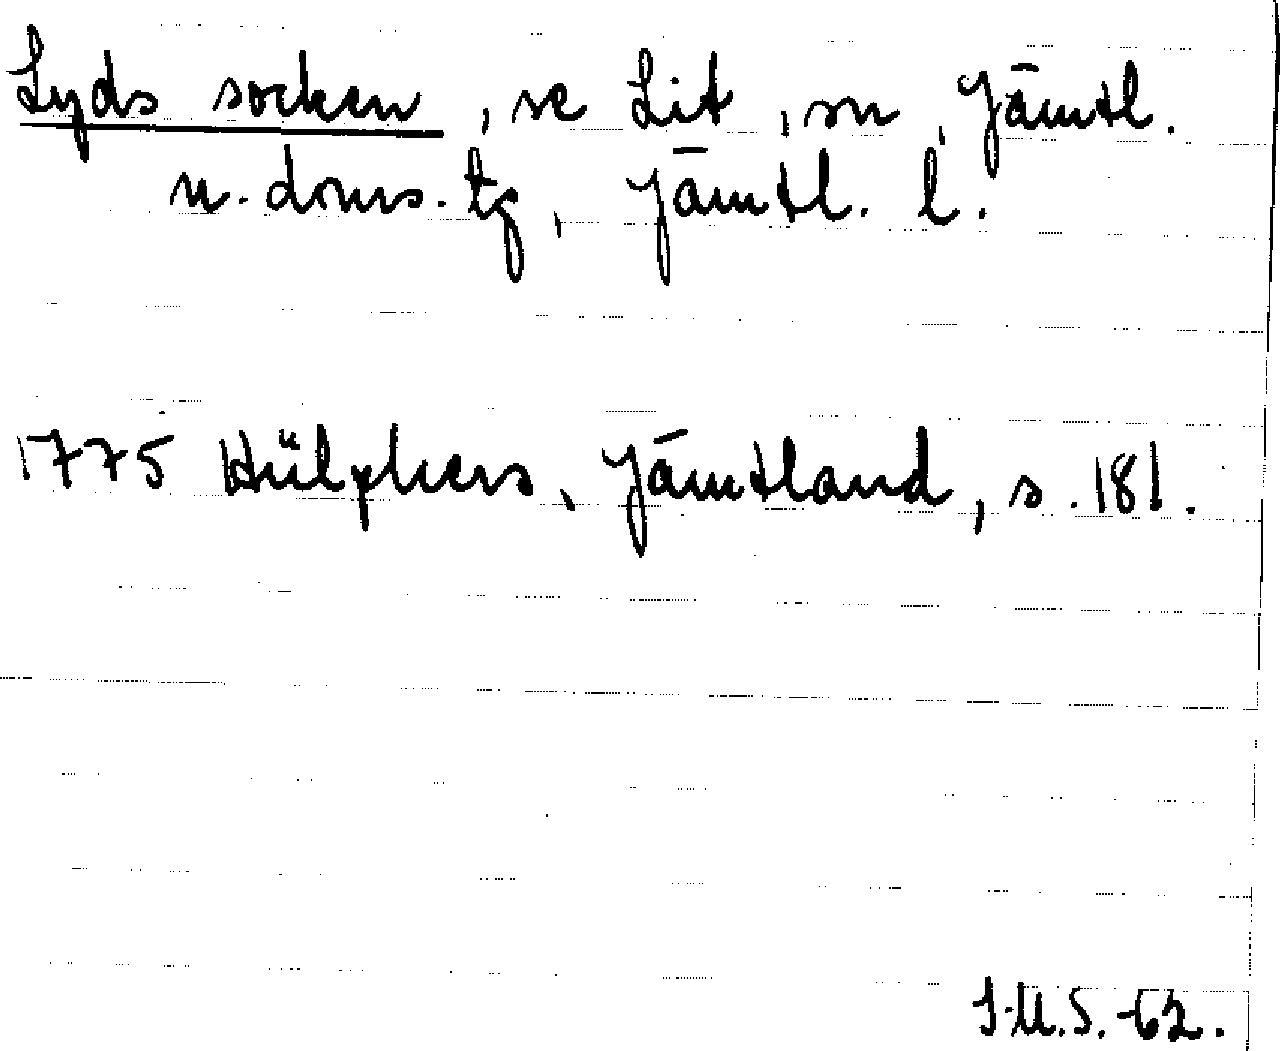 Lyds socken, se Lit, sn, Jämtl.
n. doms. tg, Jämtl. l.
1775 Hülphers, Jämtland, s. 181.
I.U.S. -62.